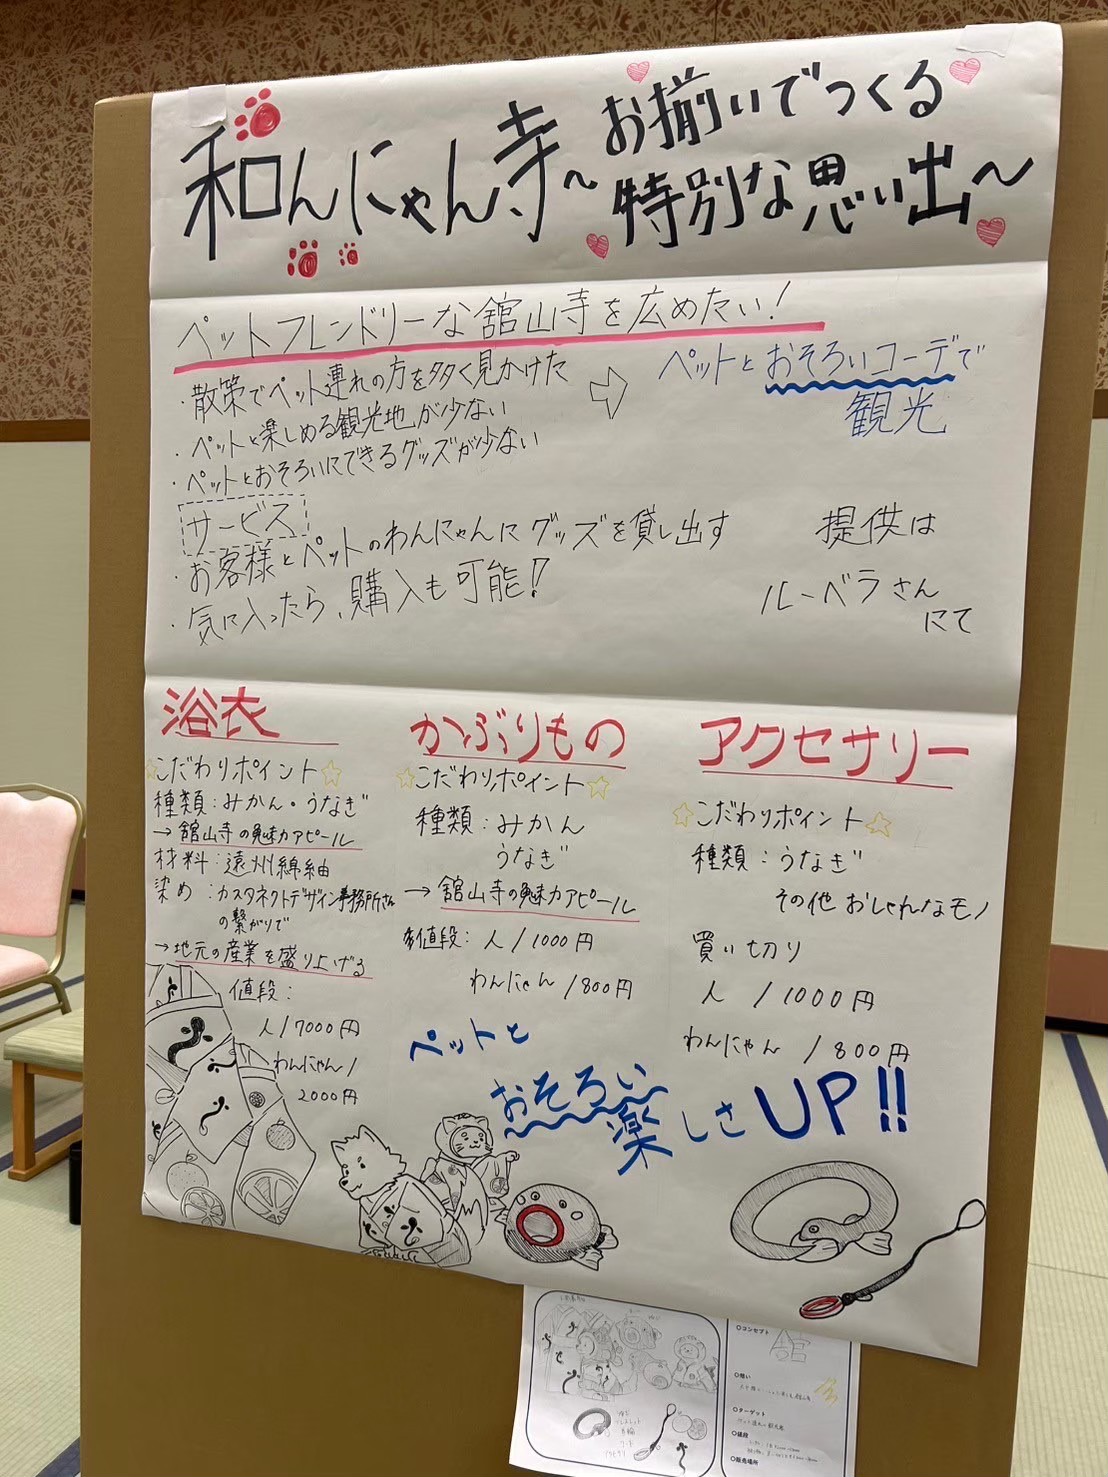 和んにゃん寺〜お揃いでつくる
特別な思い出〜
ペットフレンドリーな舘山寺を広めたい!
・散策でペット連れの方を多く見かけた
・ペットと楽しめる観光地が少ない
・ペットとおそろいにできるグッズが少ない
ペットとおそろいコーデで
観光
サービス
・お客様とペットのわんにゃんにグッズを貸し出す
・気に入ったら、購入も可能!
提供は
ルーベラさん
にて
浴衣
こだわりポイント
種類:みかん・うなぎ
→舘山寺の魅力アピール
材料:遠州綿紬
染め:カスタネクトデザイン事務所さん
の繋がりで
→地元の産業を盛り上げる
値段:
人/7000円
わんにゃん/
2000円
かぶりもの
こだわりポイント
種類:みかん
うなぎ
→舘山寺の魅力アピール
値段:人/1000円
わんにゃん/800円
アクセサリー
こだわりポイント
種類:うなぎ
その他おしゃれなモノ
買い切り
人/1000円
わんにゃん/800円
ペットと
おそろい
楽しさUP!!
○コンセプト
○想い
○ターゲット
○値段
○販売場所